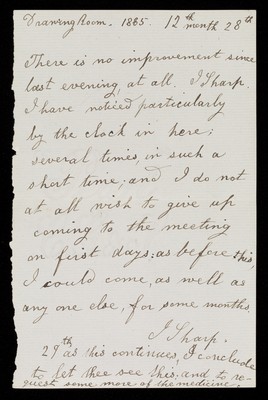 Drawing Room - 1865. 12th month 28th
There is no improvement since
last evening, at all. I Sharp.
I have noticed particularly
by the clock in here;
several times, in such a
short time; and I do not
at all wish to give up
coming to the meeting
on first days: as before this,
I could come, as well as
any one else, for some months.
I Sharp.
29th as this continues, I conclude
to let thee see this, and to re-
quest some more of the medicine.